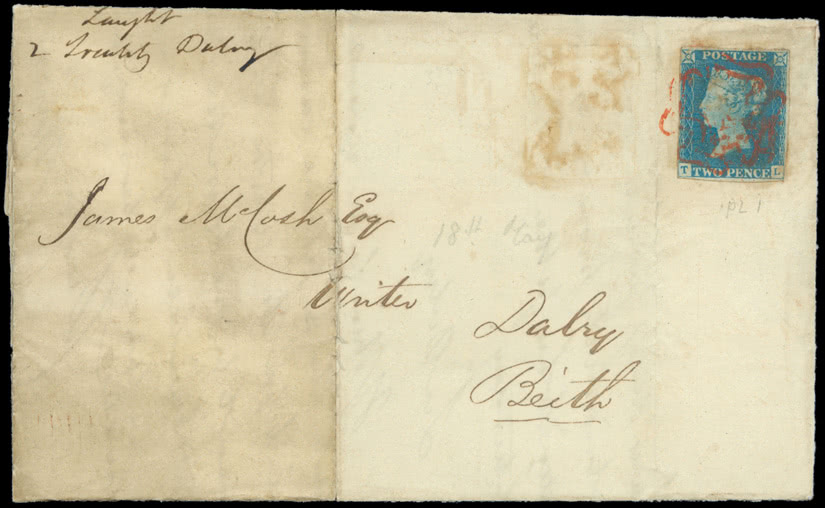 Laught
2 Dalry
POSTAGE
T TWO PENCE L
pl 1
James McCosh Esq
18th May
Writer
Dalry
Beith